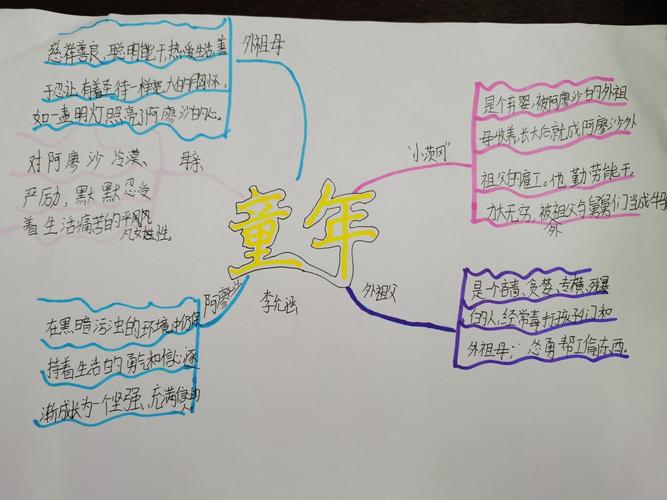 外祖母
慈祥善良、聪明能干热爱生活善
于忍让,有着圣徒一样宽大的胸怀,
如一盏明灯照亮了阿廖沙的心。
母亲
对阿廖沙冷漠、
严厉,默默忍受
着生活痛苦的平凡
女性。
童年
李允涵
"小茨冈"
是个弃婴,被阿廖沙的外祖
母收养,长大后就成阿廖沙外
祖父的雇工。他勤劳能干,
力大无穷,被祖父与舅舅们当成牛
外
阿廖
在黑暗污浊的环境中仍保
持着生活的勇气和信心,逐
渐成长为一个坚强、充满
外祖父
是一个吝啬、贪婪、专横、残暴
的人,经常毒打孩子们和
外祖母;怂恿帮工偷东西。